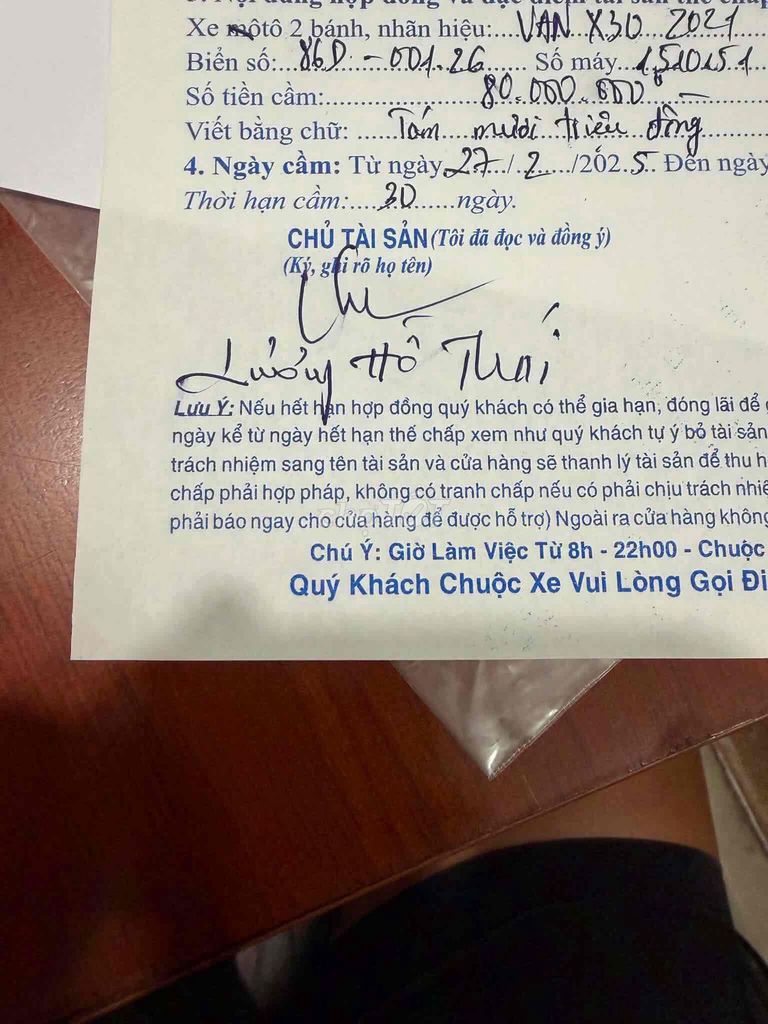 Xe môtô 2 bánh, nhãn hiệu:....VAN X30 2021
Biển số:...86D - 001.26... Số máy 1510151
Số tiền cầm:..........80.000.000đ -
Viết bằng chữ: .....Tám mươi triệu đồng
4. Ngày cầm: Từ ngày 27../..2..../202.5.. Đến ngày
Thời hạn cầm:.....30.......ngày.
CHỦ TÀI SẢN (Tôi đã đọc và đồng ý)
(Ký, ghi rõ họ tên)
Lưỡng Hồ Thái
Lưu Ý: Nếu hết hạn hợp đồng quý khách có thể gia hạn, đóng lãi để
ngày kể từ ngày hết hạn thế chấp xem như quý khách tự ý bỏ tài sản
trách nhiệm sang tên tài sản và cửa hàng sẽ thanh lý tài sản để thu h
chấp phải hợp pháp, không có tranh chấp nếu có phải chịu trách nhiệ
phải báo ngay cho cửa hàng để được hỗ trợ) Ngoài ra cửa hàng không
Chú Ý: Giờ Làm Việc Từ 8h - 22h00 - Chuộc
Quý Khách Chuộc Xe Vui Lòng Gọi Đi